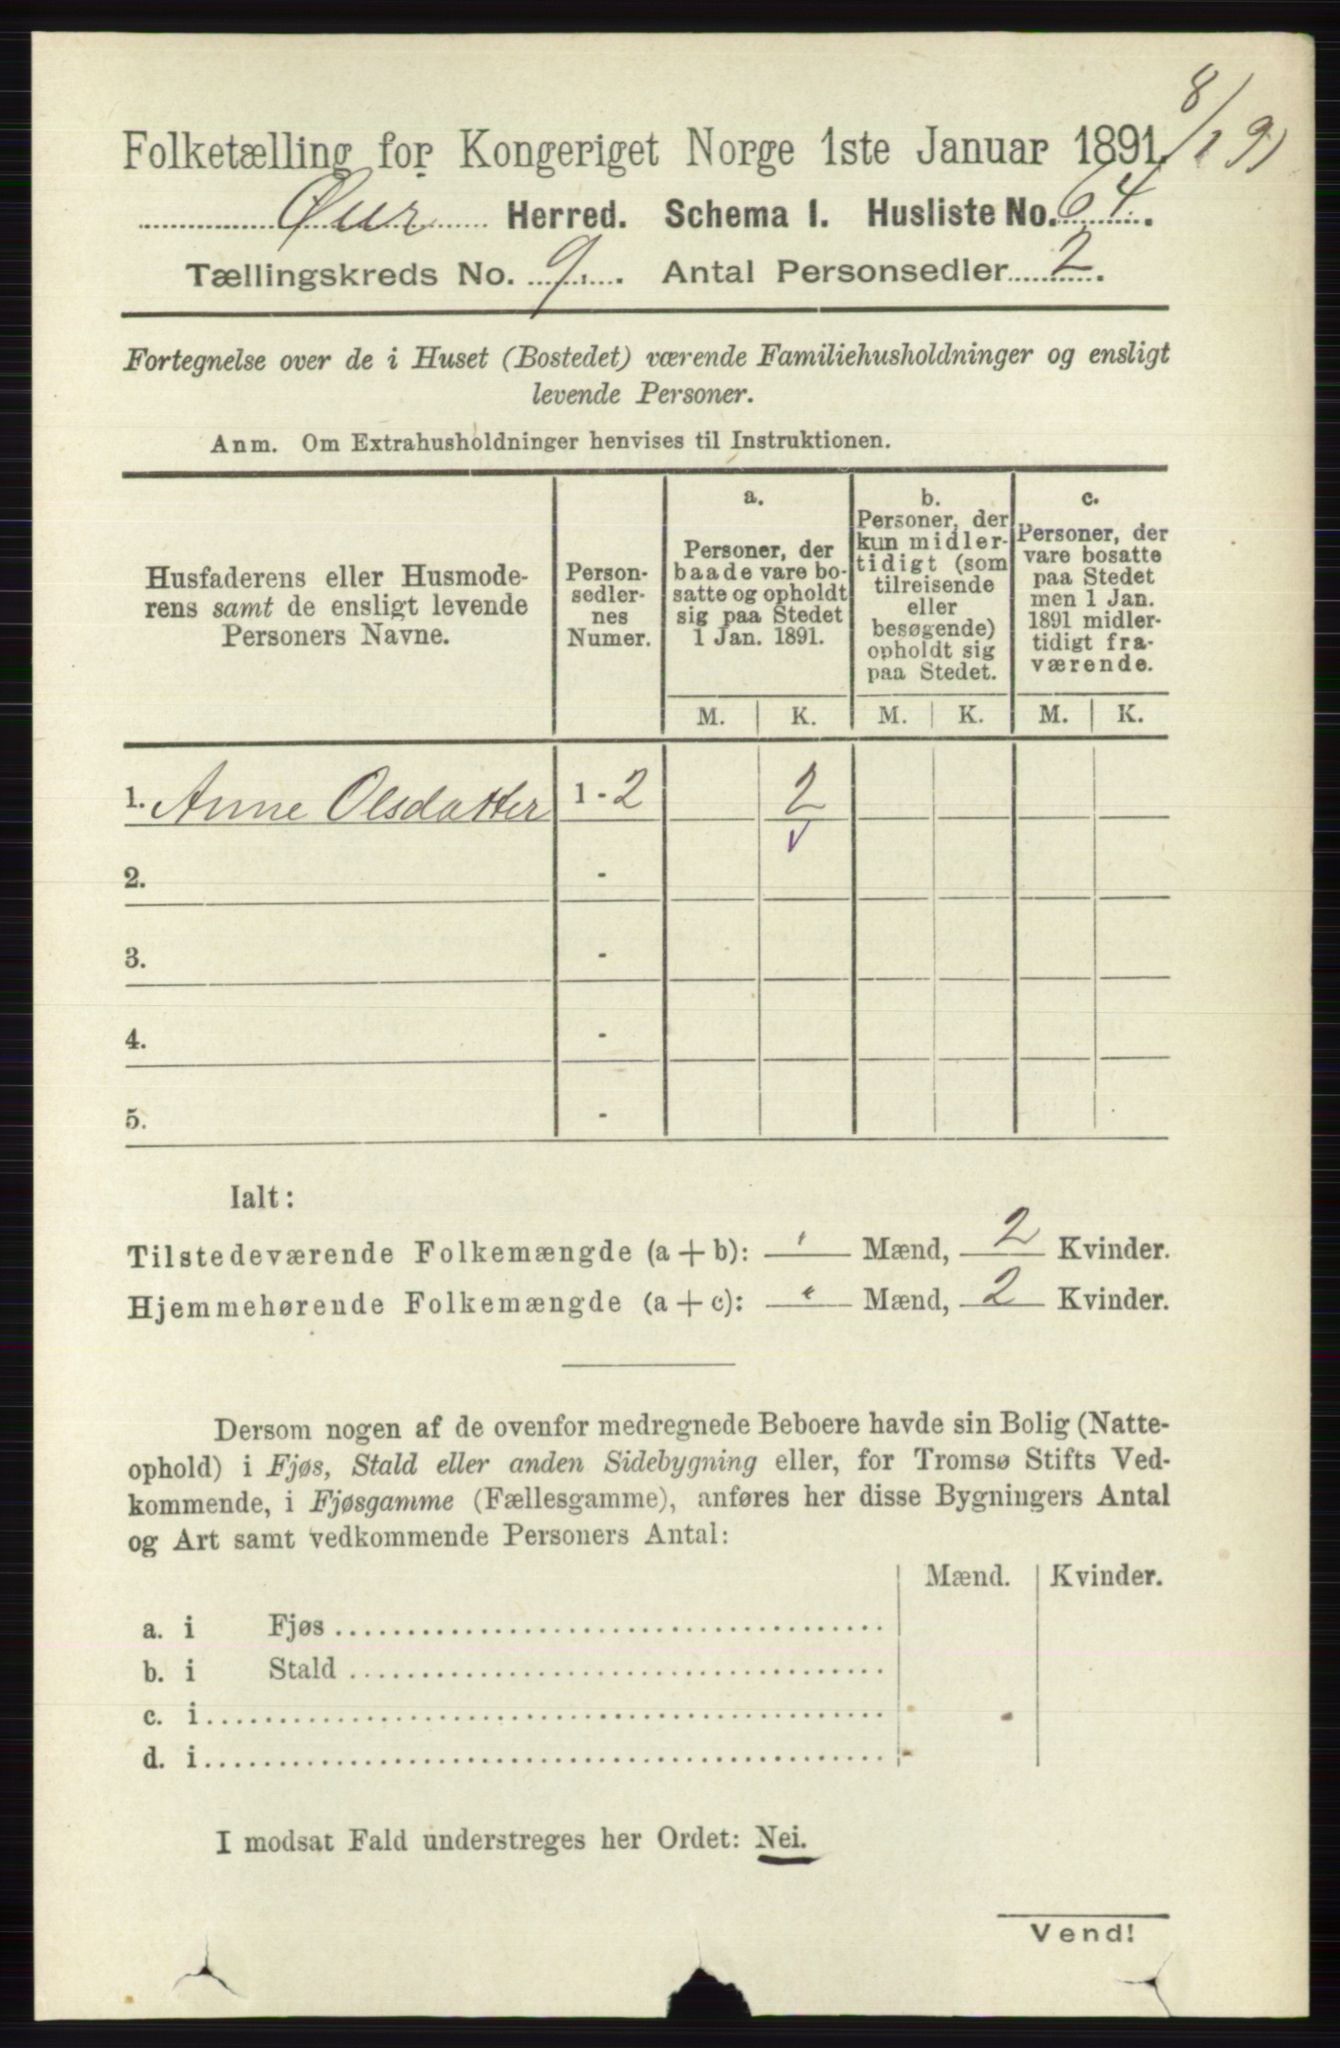 8/1 91
Folketælling for Kongeriget Norge 1ste Januar 1891.
Øier Herred. Schema I. Husliste No. 64.
Tællingskreds No. 9. Antal Personsedler 2.
Fortegnelse over de i Huset (Bostedet) værende Familiehusholdninger og ensligt
levende Personer.
Anm. Om Extrahusholdninger henvises til Instruktionen.
Husfaderens eller Husmode-
rens samt de ensligt levende
Personers Navne.
Person-
sedler-
nes
Numer.
a.
Personer, der
baade vare bo-
satte og opholdt
sig paa Stedet
1 Jan. 1891.
b.
Personer, der
kun midler-
tidigt (som
tilreisende
eller
besøgende)
opholdt sig
paa Stedet.
c.
Personer, der
vare bosatte
paa Stedet
men 1 Jan.
1891 midler-
tidigt fra-
værende.
M. K. M. K. M. K.
1. Anne Olsdatter 1 - 2 2
2. -
3. -
4. -
5. -
Ialt:
Tilstedeværende Folkemængde (a + b): Mænd, 2 Kvinder.
Hjemmehørende Folkemængde (a + c): Mænd, 2 Kvinder.
Dersom nogen af de ovenfor medregnede Beboere havde sin Bolig (Natte-
ophold) i Fjøs, Stald eller anden Sidebygning eller, for Tromsø Stifts Ved-
kommende, i Fjøsgamme (Fællesgamme), anføres her disse Bygningers Antal
og Art samt vedkommende Personers Antal:
Mænd. Kvinder.
a. i Fjøs
b. i Stald
c. i
d. i
I modsat Fald understreges her Ordet: Nei.
Vend!